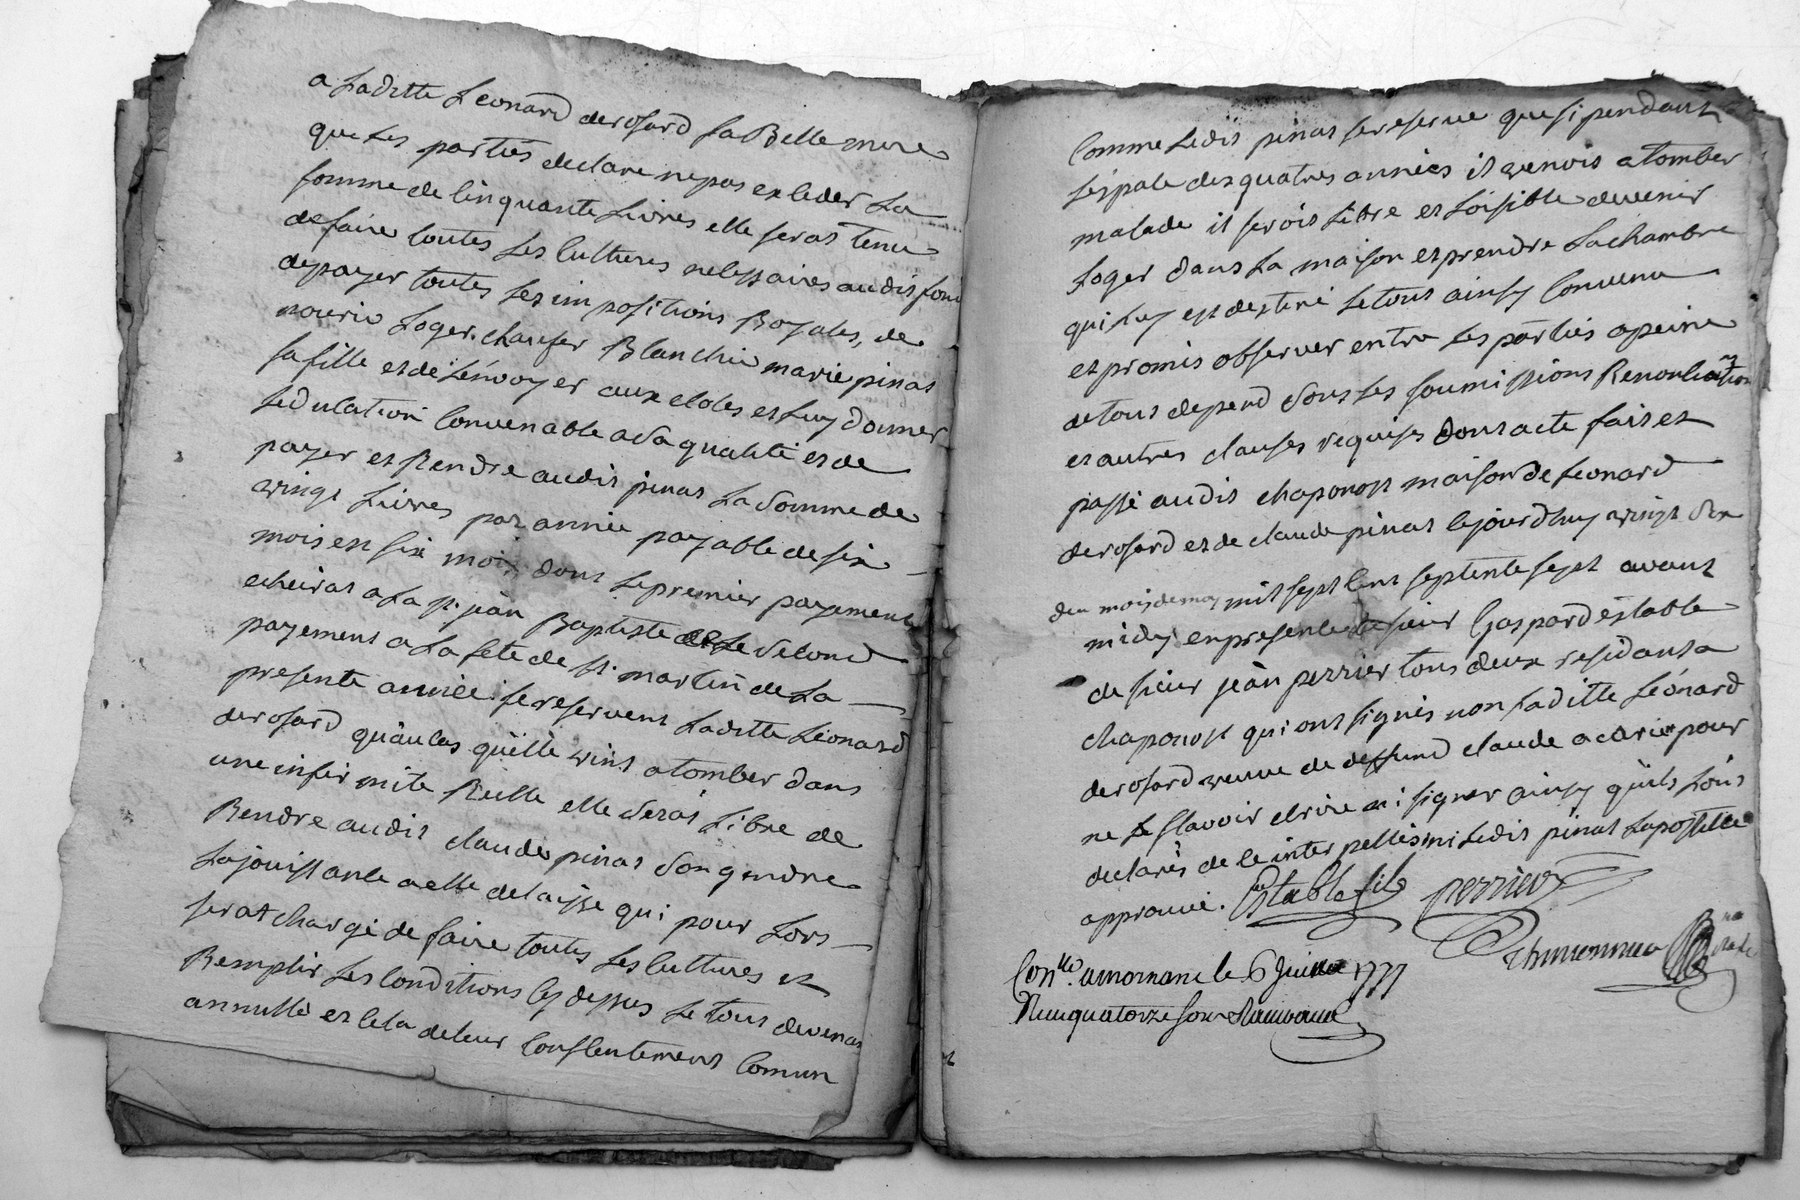 a Laditte Leonard derosard sa Belle mere
que Les partiés declare ne pas exceder La
somme de Cinquante Livres elle seras tenu
de faire toutes Les Cultures necessaires audis fond
de payer toutes Les impositions Royales, de
nourir Loger. chaufer Blanchir marie pinas
sa fille et de L'envoyer aux ecoles et Luy donner
Leducation Convenable a Sa qualité et de
payer et Rendre audis pinas La Somme de
vingt Livres par année payable de six
mois en six mois dont Le premier payement
echeiras a La st. jean Baptiste et Le Second
payement a La fete de st. martin de La
presente année. se reservent Laditte Leonard
derosard qu'au cas qu'elle vins a tomber dans
une infirmite Réelle elle Seras Libre de
Rendre audis claude pinas Son gendre
La jouissance a elle delaisse qui pour Lors
seras chargé de faire toutes Les Cultures et
Remplir Les Conditions Cy dessus Le tous devenas
annullé et Cela de leur Consentement Comun
Comme Ledis pinas se reserve que si pendant
Lespace des quatres années il venois a tomber
malade il serois Libre et Loisible de venir
Loger dans La maison et prendre La chambre
qui Luy est destiné Le tous ainsy Convenu
et promis observer entre Les partiés a peine
de tous depend Sous Les soumissions Renonciation
et autres clauses requises Dont acte fait et
passé audis chaponost maison de Leonard
derosard et de claude pinas cejourdhuy vingt Six
du mois de may mil sept Cens septente sept avant
midy en presence de sieur Gaspard estable
de sieur jean perrier tous deux residant a
chaponost qui ont signés non Laditte Léonard
derosard veuve de deffund claude acarie pour
ne Le sçavoir ecrire ni signer ainsy qu'ils L'ons
declarés de ce interpellés ni Ledis pinas Lapostille
approuvé. Estable fils perrier
Conllé. a mornant le 6 Juin 1777
Reçu quatorze sous